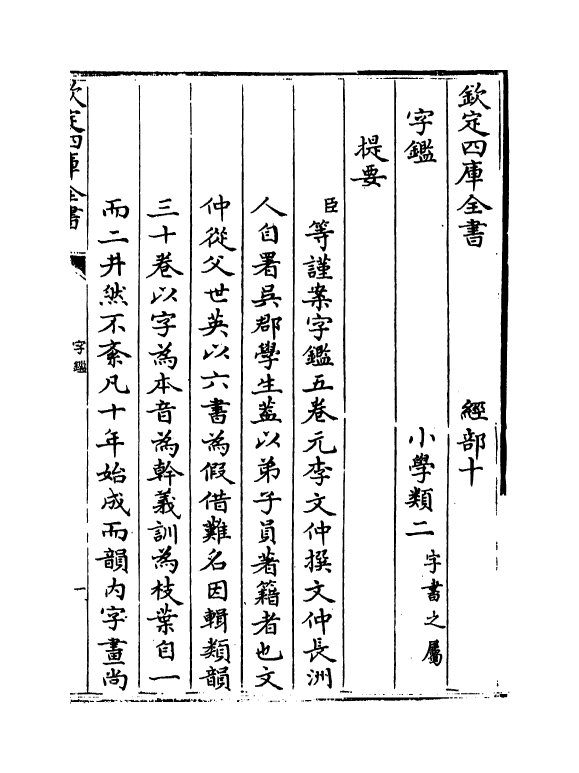 欽定四庫全書　經部十
字鑑　小學類二字書之屬
提要
臣等謹案字鑑五卷元李文仲撰文仲長洲
人自署吳郡學生蓋以弟子員著籍者也文
仲從父世英以六書為假借難名因輯類韻
三十卷以字為本音為幹義訓為枝葉自一
而二井然不紊凡十年始成而韻内字畫尚
欽定四庫全書
字鑑
一